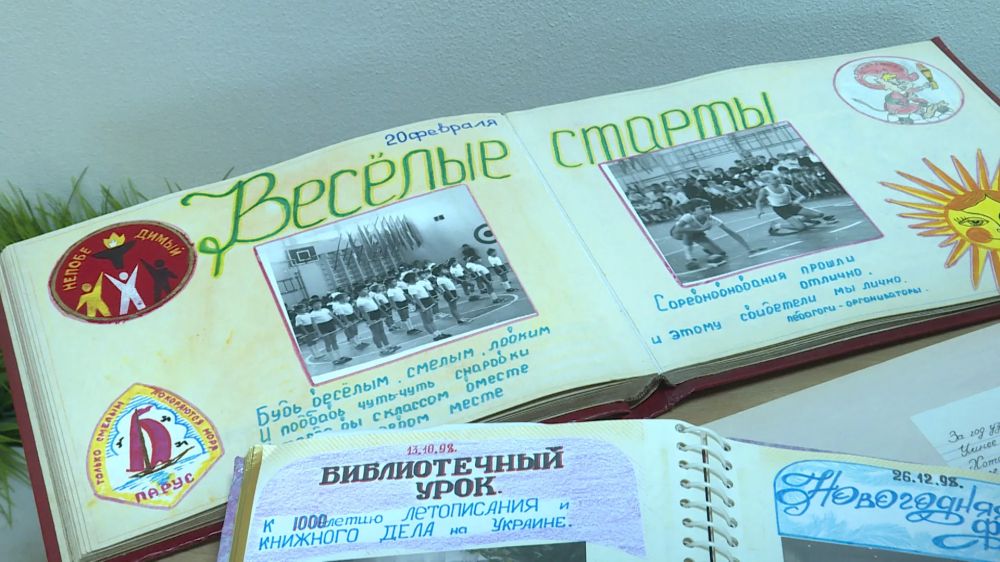 20 февраля
Весёлые старты
НЕПОБЕДИМЫЙ
Будь весёлым, смелым, ловким
И подбавь чуть-чуть сноровки
вы с классом вместе
месте
ТОЛЬКО СМЕЛЫМ ПОКОРЯЮТСЯ МОРЯ
ПАРУС
Соревнования прошли
отлично.
и этому свидетели мы лично.
педагоги-организаторы.
13.10.98.
БИБЛИОТЕЧНЫЙ
УРОК.
К 1000летию ЛЕТОПИСАНИЯ и
КНИЖНОГО ДЕЛА на УКРАИНЕ.
За год
26.12.98.
Новогодняя